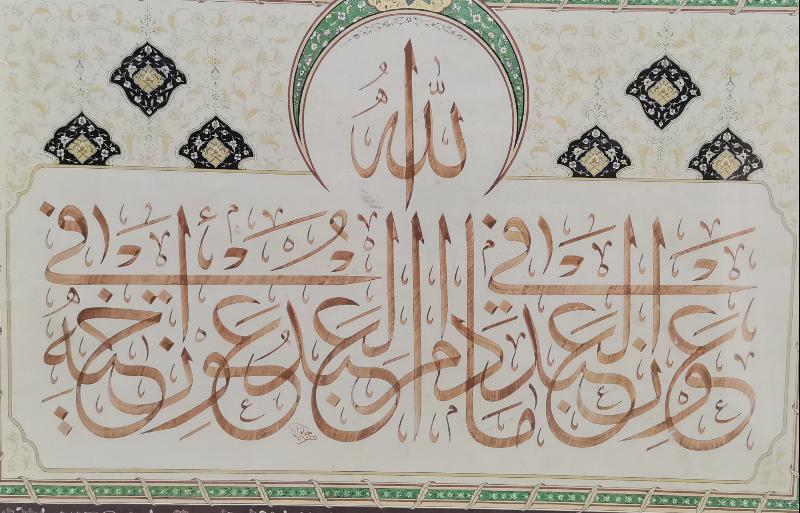 الله
في عون العبد ما دام العبد في عون أخيه